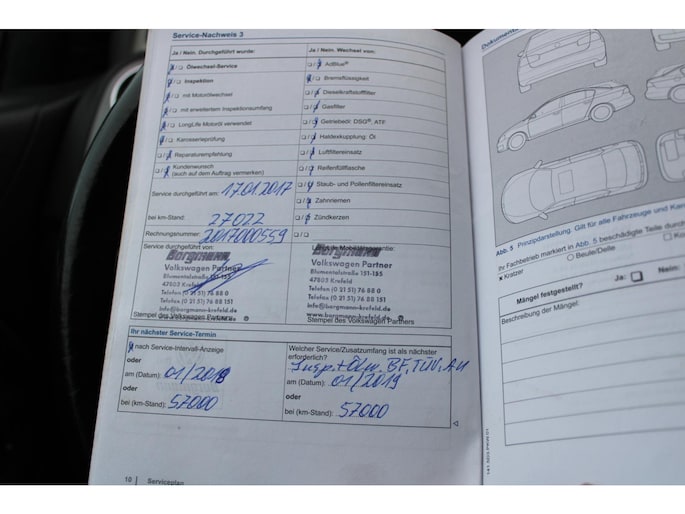 Service-Nachweis 3
Ja / Nein. Durchgeführt wurde:
Ölwechsel-Service
Inspektion
mit Motorölwechsel
mit erweitertem Inspektionsumfang
LongLife Motoröl verwendet
Karosserieprüfung
Reparaturempfehlung
Kundenwunsch
(auch auf dem Auftrag vermerken)
Service durchgeführt am: 17.01.2017
bei km-Stand: 27022
Rechnungsnummer: 2017000559
Ja / Nein. Wechsel von:
AdBlue®
Bremsflüssigkeit
Dieselkraftstofffilter
Gasfilter
Getriebeöl: DSG®, ATF
Haldexkupplung Öl
Luftfiltereinsatz
Reifenfüllflasche
Staub- und Pollenfiltereinsatz
Zahnriemen
Zündkerzen
Service durchgeführt von:
Bergmann
Volkswagen Partner
Blumentalstraße 151-155
47803 Krefeld
Telefon (0 21 51) 76 88 0
Telefax (0 21 51) 76 88 151
info@bergmann-krefeld.de
www.bergmann-krefeld.de
Stempel des Volkswagen Partners
LongLife Mobilitätsgarantie:
Bergmann
Volkswagen Partner
Blumentalstraße 151-155
47803 Krefeld
Telefon (0 21 51) 76 88 0
Telefax (0 21 51) 76 88 151
info@bergmann-krefeld.de
www.bergmann-krefeld.de
Stempel des Volkswagen Partners
Ihr nächster Service-Termin
nach Service-Intervall-Anzeige
oder
am (Datum): 01/2018
oder
bei (km-Stand): 57000
Welcher Service/Zusatzumfang ist als nächster
erforderlich?
Insp.+Ölw. BF, TÜV, AU
am (Datum): 01/2019
oder
bei (km-Stand): 57000
10 Serviceplan
Abb. 5 Prinzipdarstellung. Gilt für alle Fahrzeuge und
Ihr Fachbetrieb markiert in Abb. 5 beschädigte Teile durch
x Kratzer
Beule/Delle
Mängel festgestellt?
Ja:
Nein:
Beschreibung der Mängel: